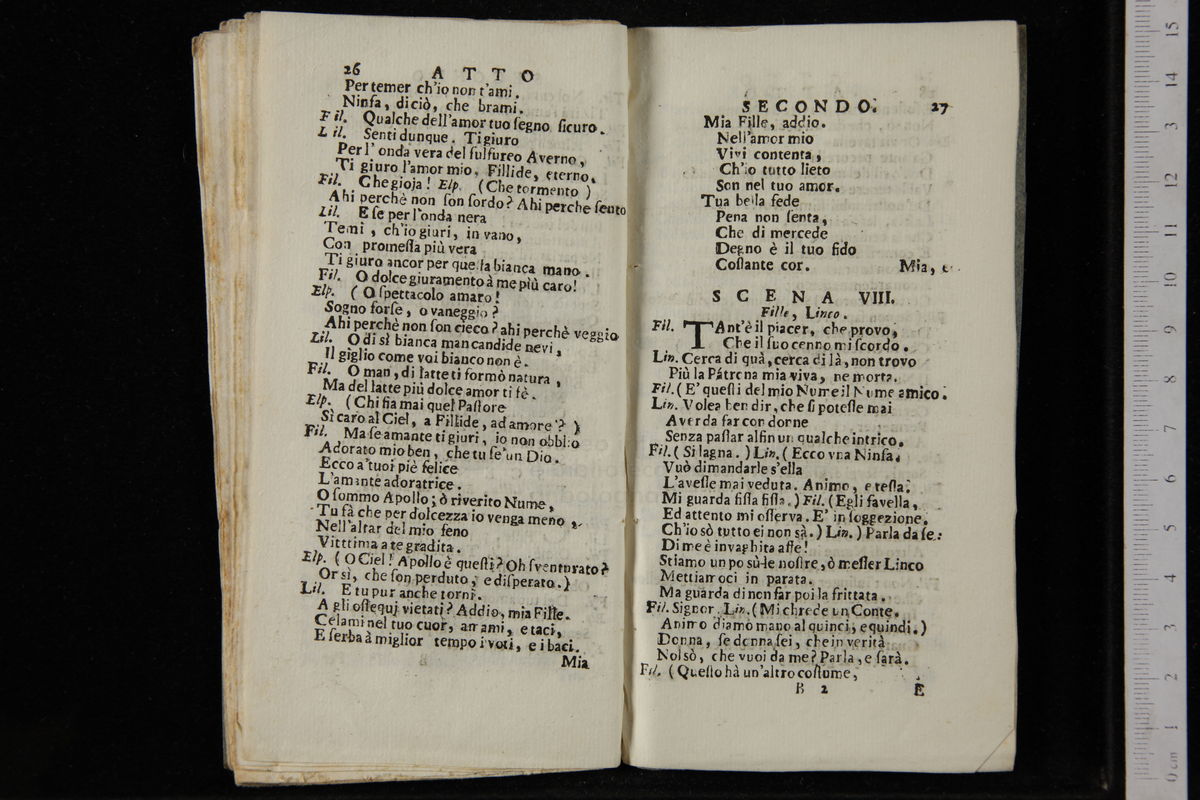 26 ATTO
Per temer ch'io non t'ami.
Ninfa, diciò, che brami.
Fil. Qualche dell'amor tuo ſegno ſicuro.
Lil. Senti dunque. Ti giuro
Per l'onda vera del ſulfureo Averno,
Ti giuro l'amor mio, Fillide, eterno.
Fil. Che gioja! Elp. (Che tormento)
Ahi perchè non ſon ſordo? Ahi perche ſento
Lil. E ſe per l'onda nera
Temi, ch'io giuri, in vano,
Con promeſſa più vera
Ti giuro ancor per queſta bianca mano.
Fil. O dolce giuramento à me più caro!
Elp. (O ſpettacolo amaro!
Sogno forſe, o vaneggio?
Ahi perchè non ſon cieco? ahi perchè veggio
Lil. O di sì bianca man candide nevi,
Il giglio come voi bianco non è.
Fil. O man, di latte ti formò natura,
Ma del latte più dolce amor ti fè.
Elp. (Chi fia mai quel Paſtore
Sì caro al Ciel, a Fillide, ad amore?)
Fil. Ma ſe amante ti giuri, io non obblio
Adorato mio ben, che tu ſe'un Dio.
Ecco a'tuoi piè felice
L'amante adoratrice.
O ſommo Apollo; ò riverito Nume,
Tu fà che per dolcezza io venga meno,
Nell'altar del mio ſeno
Vitttima a te gradita.
Elp. (O Ciel! Apollo è queſti? Oh ſventurato?
Or sì, che ſon perduto, e diſperato.)
Lil. E tu pur anche torni
A gli oſſequj vietati? Addio, mia Fille.
Celami nel tuo cuor, amami, e taci,
E ſerba à miglior tempo i voti, e i baci.
Mia
SECONDO. 27
Mia Fille, addio.
Nell'amor mio
Vivi contenta,
Ch'io tutto lieto
Son nel tuo amor.
Tua bella fede
Pena non ſenta,
Che di mercede
Degno è il tuo fido
Coſtante cor. Mia, &c.
SCENA VIII.
Fille, Linco.
Fil. TAnt'è il piacer, che provo,
Che il ſuo cenno mi ſcordo.
Lin. Cerca di quà, cerca di là, non trovo
Più la Patrona mia viva, ne morta.
Fil. (E' queſti del mio Nume il Nume amico.
Lin. Volea ben dir, che ſi poteſſe mai
Aver da far con donne
Senza paſſar alfin un qualche intrico.
Fil. (Si lagna.) Lin. (Ecco una Ninfa.
Vuò dimandarle s'ella
L'aveſſe mai veduta. Animo, e teſta.
Mi guarda fiſſa fiſſa.) Fil. (Egli favella,
Ed attento mi oſſerva. E' in ſoggezione.
Ch'io sò tutto ei non sà.) Lin.) Parla da ſe:
Di me è invaghita affe!
Stiamo un po sù le noſtre, ò meſſer Linco
Mettiamoci in parata.
Ma guarda di non far poi la frittata.
Fil. Signor. Lin. (Mi chrede un Conte.
Animo diamo mano al quinci, e quindi.)
Donna, ſe donna ſei, che in verità
Nol sò, che vuoi da me? Parla, e ſarà.
Fil. (Queſto hà un'altro coſtume,
B 2 E